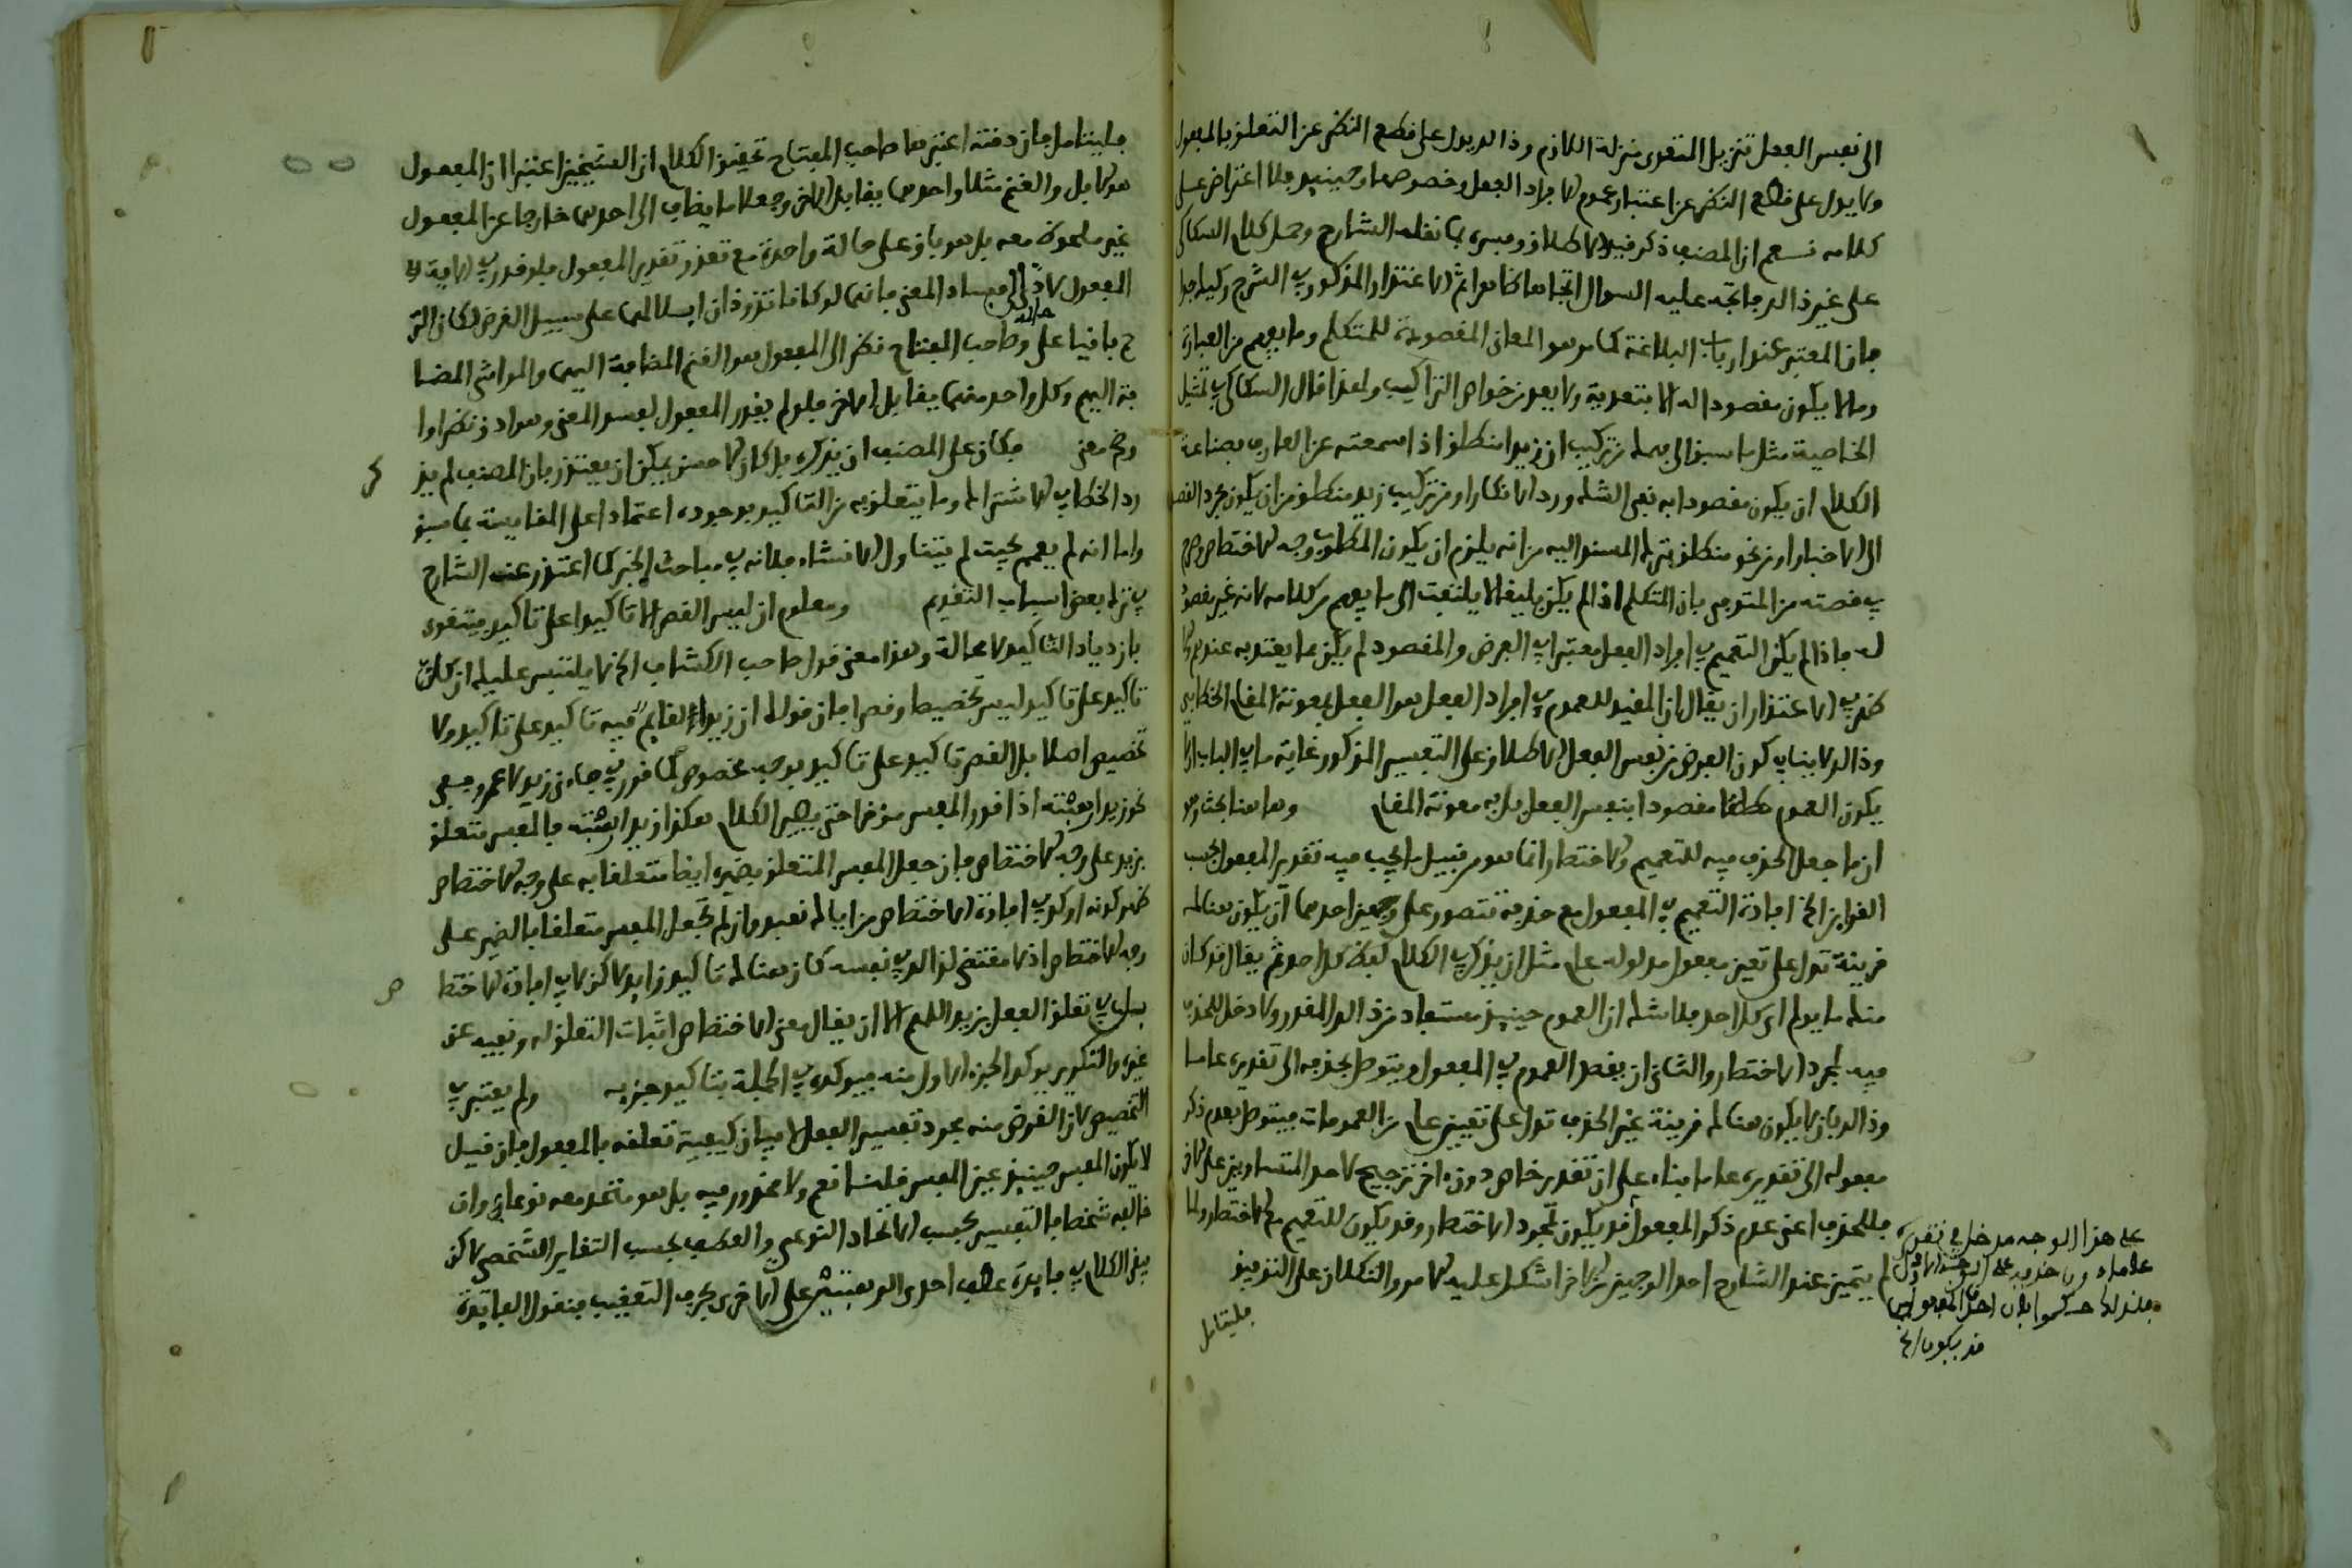 الى نفس الفعل تنزيل المتعدى منزلة اللازم وذالك يدل على قطع النظر عن التعلق بالمفعول
ولا يدل على قطع النظر عن اعتبار عموم افراد الفعل وخصوصها وحينيذ فلا اعتراض على
كلامه نعم ان المصنف ذكر فيد الاطلاق وفسره بما نقله الشارح وحمل كلام السكاكى
على غير ذالك فاتجه عليه السوال اتجاها ظاهرا ثم الاعتذار المذكور فى الشرح
فان المعتبر عند ارباب البلاغة كما مر هو المعانى المقصودة للمتكلم وما يفهم من العبارة
وما لا يكون مقصودا له لا يعد من خواص التراكيب ولهذا قال السكاكى فى تمثيل
الخاصية مثل ما يسبق الى فهمك من تركيب ان زيدا منطلق اذا سمعته عن العارف بصناعة
الكلام ان يكون مقصودا به نفى الشك ورد الانكار او من تركيب زيد منطلق من ان يكون مجرد القصد
الى الاخبار او من نحو منطلق بترك المسند اليه من انه يلزم ان يكون المطلوب وجه الاختصار وصرح
فى قصته من المتوفى بان المتكلم اذا لم يكن بليغا لا يلتفت الى ما يفهم من كلامه لانه غير مقصود
له فاذا لم يكن التعميم فى افراد الفعل معتبرا فى الغرض والمقصود لم يكن مما يعتد به عندهم
فى الاعتذار ان يقال ان المفيد للعموم فى افراد الفعل هو الفعل بمعونة المقام الخطابى
وذالك لا ينافى كون الغرض من نفس الفعل الاطلاق على التفسير المذكور غاية ما فى الباب ان لا
يكون العموم مطلقا مقصودا بنفس الفعل بل به معونة المقام وها هنا بحث وهو
ان ما جعل الحذف فيه للتعميم والاختصار انما هو من قبيل ما يجب فيه تقدير المفعول بحسب
القراين الخ افادة التعميم فى المفعول مع حذفه تتصور على وجهين احدهما ان يكون هنالك
قرينة تدل على تعين مفعول مدلوله عام مثل ان يذكر فى الكلام لفظ كل احد ثم يقال قد كان
منك ما يولم اى كل احد فلا شك ان العموم حينيذ مستفاد من ذالك المقدر ولا دخل للحذف
فيه لمجرد الاختصار والثانى ان يقصد العموم فى المفعول ويتوصل بحذفه الى تقديره عاما
وذالك بان لا يكون هنالك قرينة غير الحذف تدل على تعيين عام من العمومات فيتوصل بعدم ذكر
مفعوله الى تقديره عاما بناء على ان تقدير خاص دون اخر ترجيح لاحد المتساويين على الاخر
فللحذف اعنى عدم ذكر المفعول قد يكون لمجرد الاختصار وقد يكون للتعميم مع الاختصار ولما
لم يتميز عند الشارح احد الوجهين من الاخر اشكل عليه الامر والتكلان على التوفيق
فليتامل
على هذا الوجه مدخل فى تقديره
عاما
قد يكون الخ
فليتامل فان دقته اعتبرها صاحب المفتاح تحقيق الكلام ان الشيخين اعتبرا ان المفعول
هو الابل والغنم مثلا واحدهما يقابل الاخر وجعلا ما يضاف الى احدهما خارجا عن المفعول
غير ملحوظ معه بل هو باق على حالة واحدة مع تقدير المفعول فلو قدر فى الاية
المفعول لادى الى فساد المعنى فانهما لو كانا تذودان ابلا لهما على سبيل الفرض لكان الترحم
باقيا على حاله وصاحب المفتاح نظر الى المفعول هو الغنم المضافة اليهما والمواشى المضا
فة اليهم وكل واحد منهما يقابل الاخر فلو لم يقدر المفعول لفسد المعنى وهو ادق نظرا
واصح معنى فكان على المصنف ان يذكره بل كان الاحسن يمكن ان يعتذر بان المصنف لم يذ كر
رد الخطا فى الاشتراك وما يتعلق به من التاكيد بوحده اعتمادا على المقايسة بما سبق
واما انه لم يعمم بحيث لم يتناول الانشاء فلانه فى مباحث الخبر كما اعتذر عنه الشارح
فى ترك بعض اسباب التقديم ومعلوم ان ليس القصر الا تاكيدا على تاكيد فيتقوى
بازدياد التاكيد لا محالة وهذا معنى قول صاحب الكشاف الخ لا يلتبس عليك ان كل
تاكيد على تاكيد ليس تخصيصا وقصرا فان قولك ان زيدا لقايم فيه تاكيد على تاكيد ولا
تخصيص اصلا بل القصر تاكيد على تاكيد بوجه مخصوص كما قرر فى جاءنى زيد لا عمرو ففى
نحو زيدا رهبته اذا قدر المفسر موخرا حتى يصير الكلام هكذا زيدا رهبته فالمفسر متعلق
بزيد على وجه الاختصاص فان جعل المفسر المتعلق بضميره ايضا متعلقا به على وجه الاختصاص
ظهر كونه اوكد فى افادة الاختصاص من اياك نعبد وان لم نجعل المفسر متعلقا بالضمير على
وجه الاختصاص اذ لا مقتضى لذالك فى نفسه كان هنالك تاكيد زايد لاكن لا فى افادة الاختصا ص
بل فى تعلق الفعل بزيد اللهم الا ان يقال معنى الاختصاص اثبات التعلق له ونفيه عن
غيره والتكرير يوكد الجزء الاول منه فيوكد فى الجملة بتاكيد جزيه ولم يعتبر فى
التخصيص لان الغرض منه مجرد تفسير الفعل لا بيان كيفية تعلقه بالمفعول فان قيل
لا يكون المفسر حينيذ عين المفسر قلت نعم ولا محذور فيه بل هو متحد معه نوعا وان
خالفه شخصا فالتفسير بحسب الاتحاد النوعى والعطف بحسب التغاير الشخصى لاكن
بقى الكلام فى فايدة عطف احدى الرهبتين على الاخرى بحرف التعقيب فنقول الفايدة